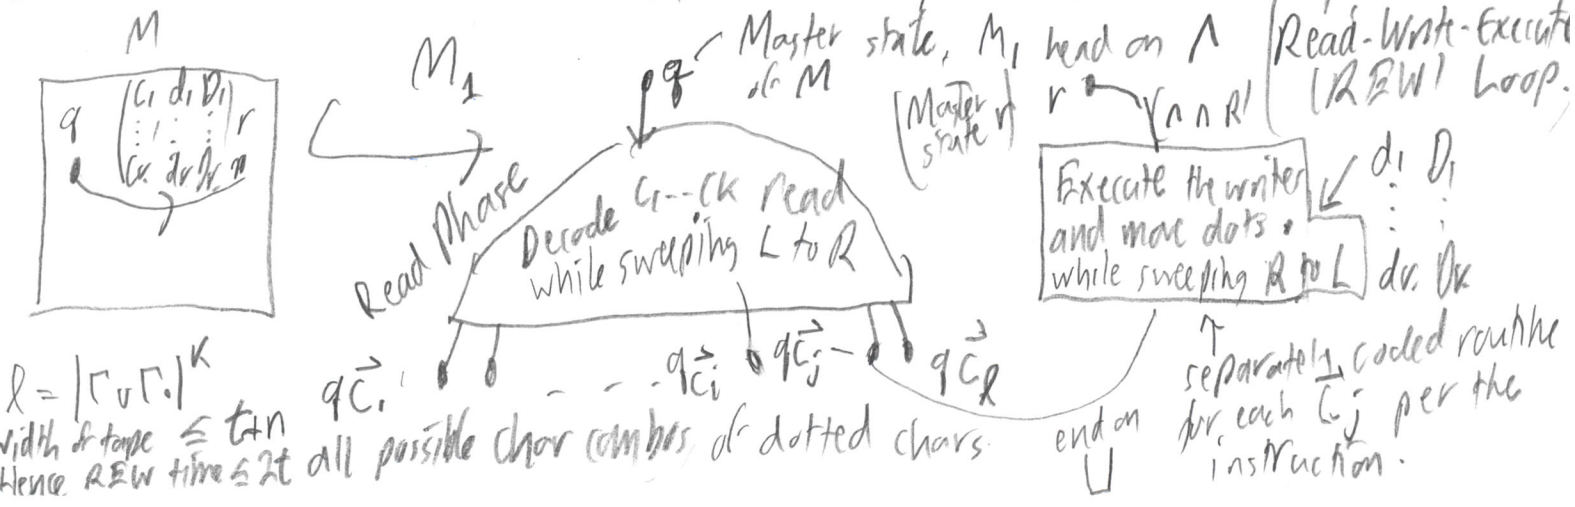 M
q
C1 d1 D1
r
Cr dr Dr
M1
q
Master state, M1 head on Λ
of M
(Master state r)
r
(Λ Λ R)
Read-Write-Execute
(REW) Loop.
Read Phase
Decode C1--Ck read
while sweeping L to R
Execute the writes
and move dots.
while sweeping R to L
d1 D1
dk Dk
qC1
qCi
qCj
qCℓ
ℓ = |Γ ∪ Γ.|^K
width of tape ≤ t+n
Hence REW time ≤ 2t
all possible char combos of dotted chars
end on
⊔
separately coded routine
for each Cj per the
instruction.